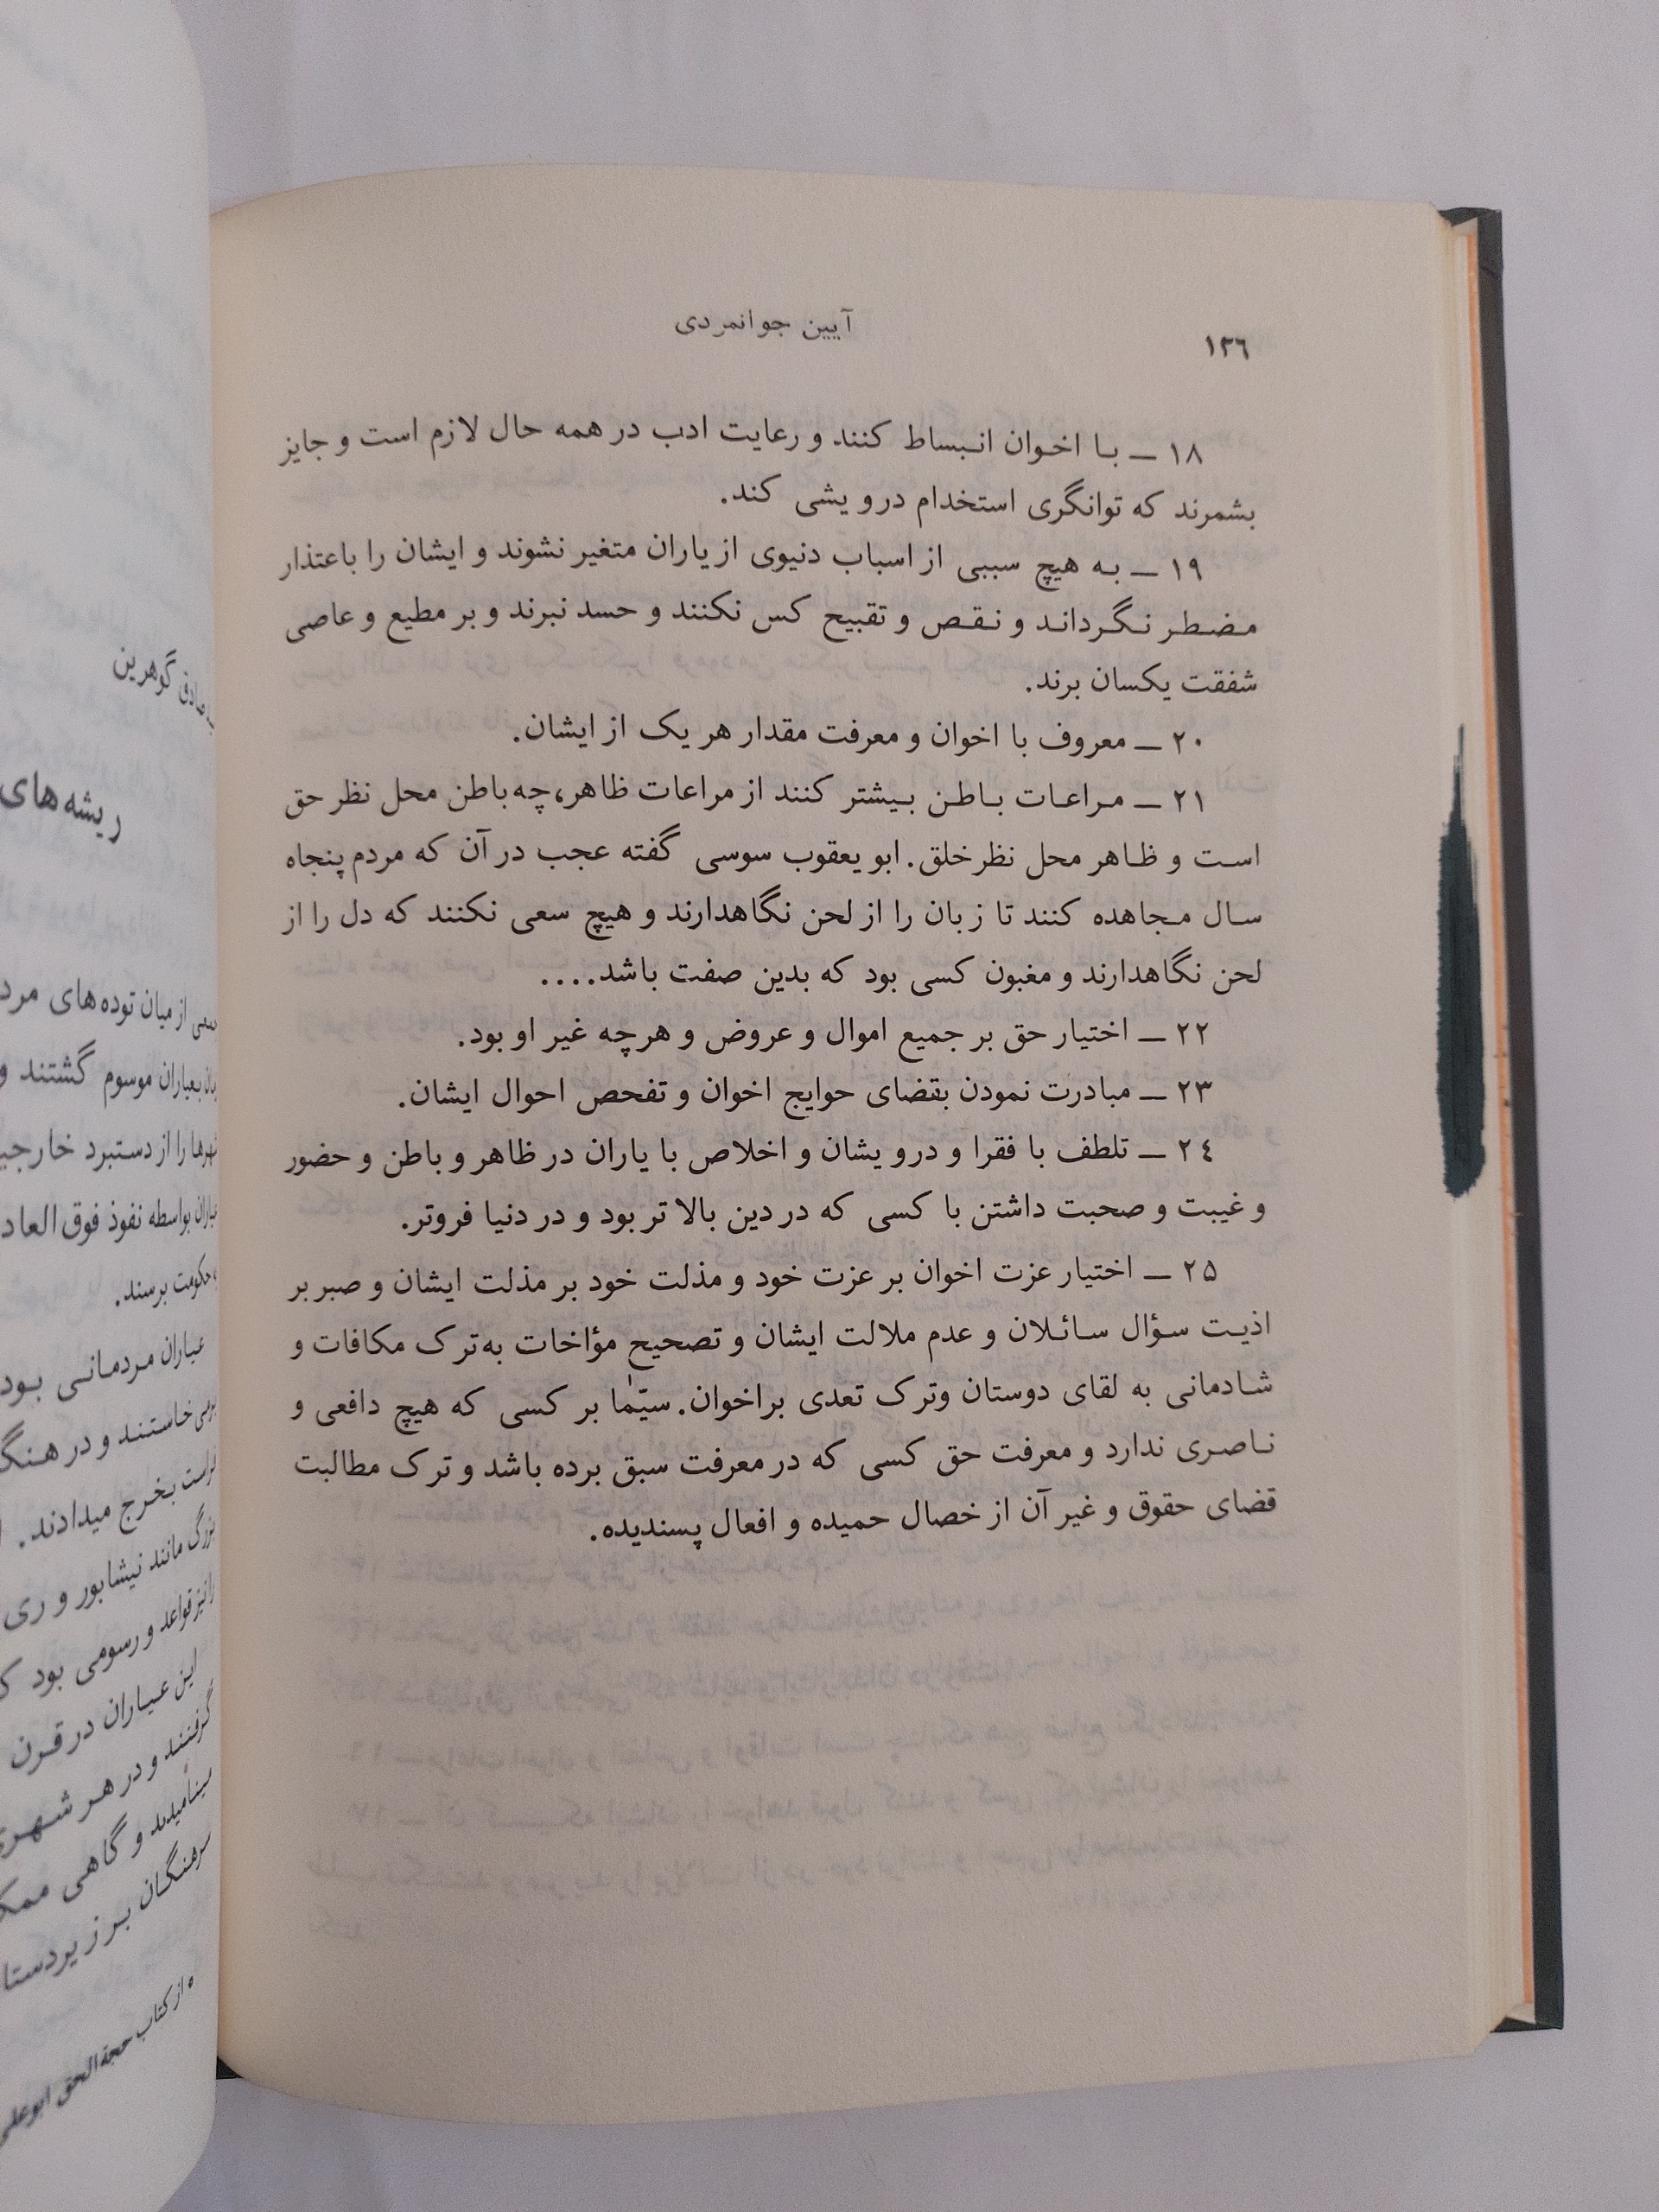 ۱۳٦
آیین جوانمردی
۱۸ — با اخوان انبساط کنند و رعایت ادب در همه حال لازم است و جایز
بشمرند که توانگری استخدام درویشی کند.
۱۹ — به هیچ سببی از اسباب دنیوی از یاران متغیر نشوند و ایشان را باعتذار
مضطر نگرداند و نقص و تقبیح کس نکنند و حسد نبرند و بر مطیع و عاصی
شفقت یکسان برند.
۲۰ — معروف با اخوان و معرفت مقدار هر یک از ایشان.
۲۱ — مراعات باطن بیشتر کنند از مراعات ظاهر، چه باطن محل نظر حق
است و ظاهر محل نظر خلق. ابو یعقوب سوسی گفته عجب در آن که مردم پنجاه
سال مجاهده کنند تا زبان را از لحن نگاهدارند و هیچ سعی نکنند که دل را از
لحن نگاهدارند و مغبون کسی بود که بدین صفت باشد....
۲۲ — اختیار حق بر جمیع اموال و عروض و هرچه غیر او بود.
۲۳ — مبادرت نمودن بقضای حوایج اخوان و تفحص احوال ایشان.
۲٤ — تلطف با فقرا و درویشان و اخلاص با یاران در ظاهر و باطن و حضور
و غیبت و صحبت داشتن با کسی که در دین بالاتر بود و در دنیا فروتر.
۲۵ — اختیار عزت اخوان بر عزت خود و مذلت خود بر مذلت ایشان و صبر بر
اذیت سؤال سائلان و عدم ملالت ایشان و تصحیح مؤاخات به ترک مکافات و
شادمانی به لقای دوستان وترک تعدی براخوان. سیّما بر کسی که هیچ دافعی و
ناصری ندارد و معرفت حق کسی که در معرفت سبق برده باشد و ترک مطالبت
قضای حقوق و غیر آن از خصال حمیده و افعال پسندیده.
صادق گوهرین
ریشه های
از میان توده های
بعیاران موسوم گشتند و
را از دستبرد
بواسطه نفوذ فوق العاد
حکومت برسند.
عیاران مردمانی بود
خاستند و در هنگ
بخرج میدادند.
بزرگ مانند نیشابور و ری
قواعد و رسومی بود
این عیاران در قرن
گرفتند و در هر شهر
و گاهی
سرهنگان بر زیردستا
از کتاب حجة الحق ابوعلی